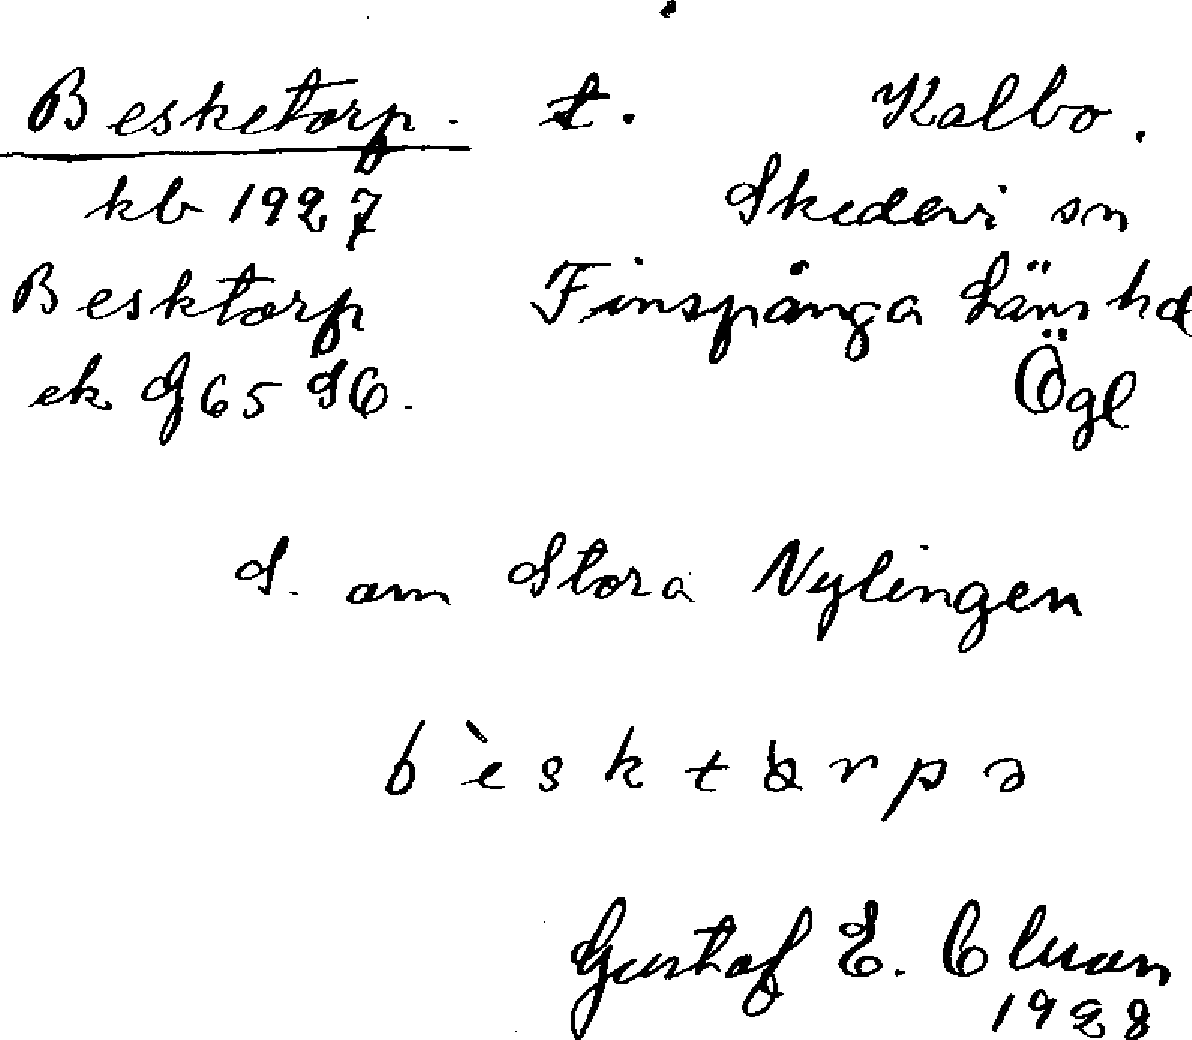 Besketorp. t. Kalbo.
kb 1927 Skedevi sn
Besktorp Finspånga Läns hd
ek G65 SO. Ögl
S. om Stora Nylingen
b è s k t r p ə
Gustaf E.
1928